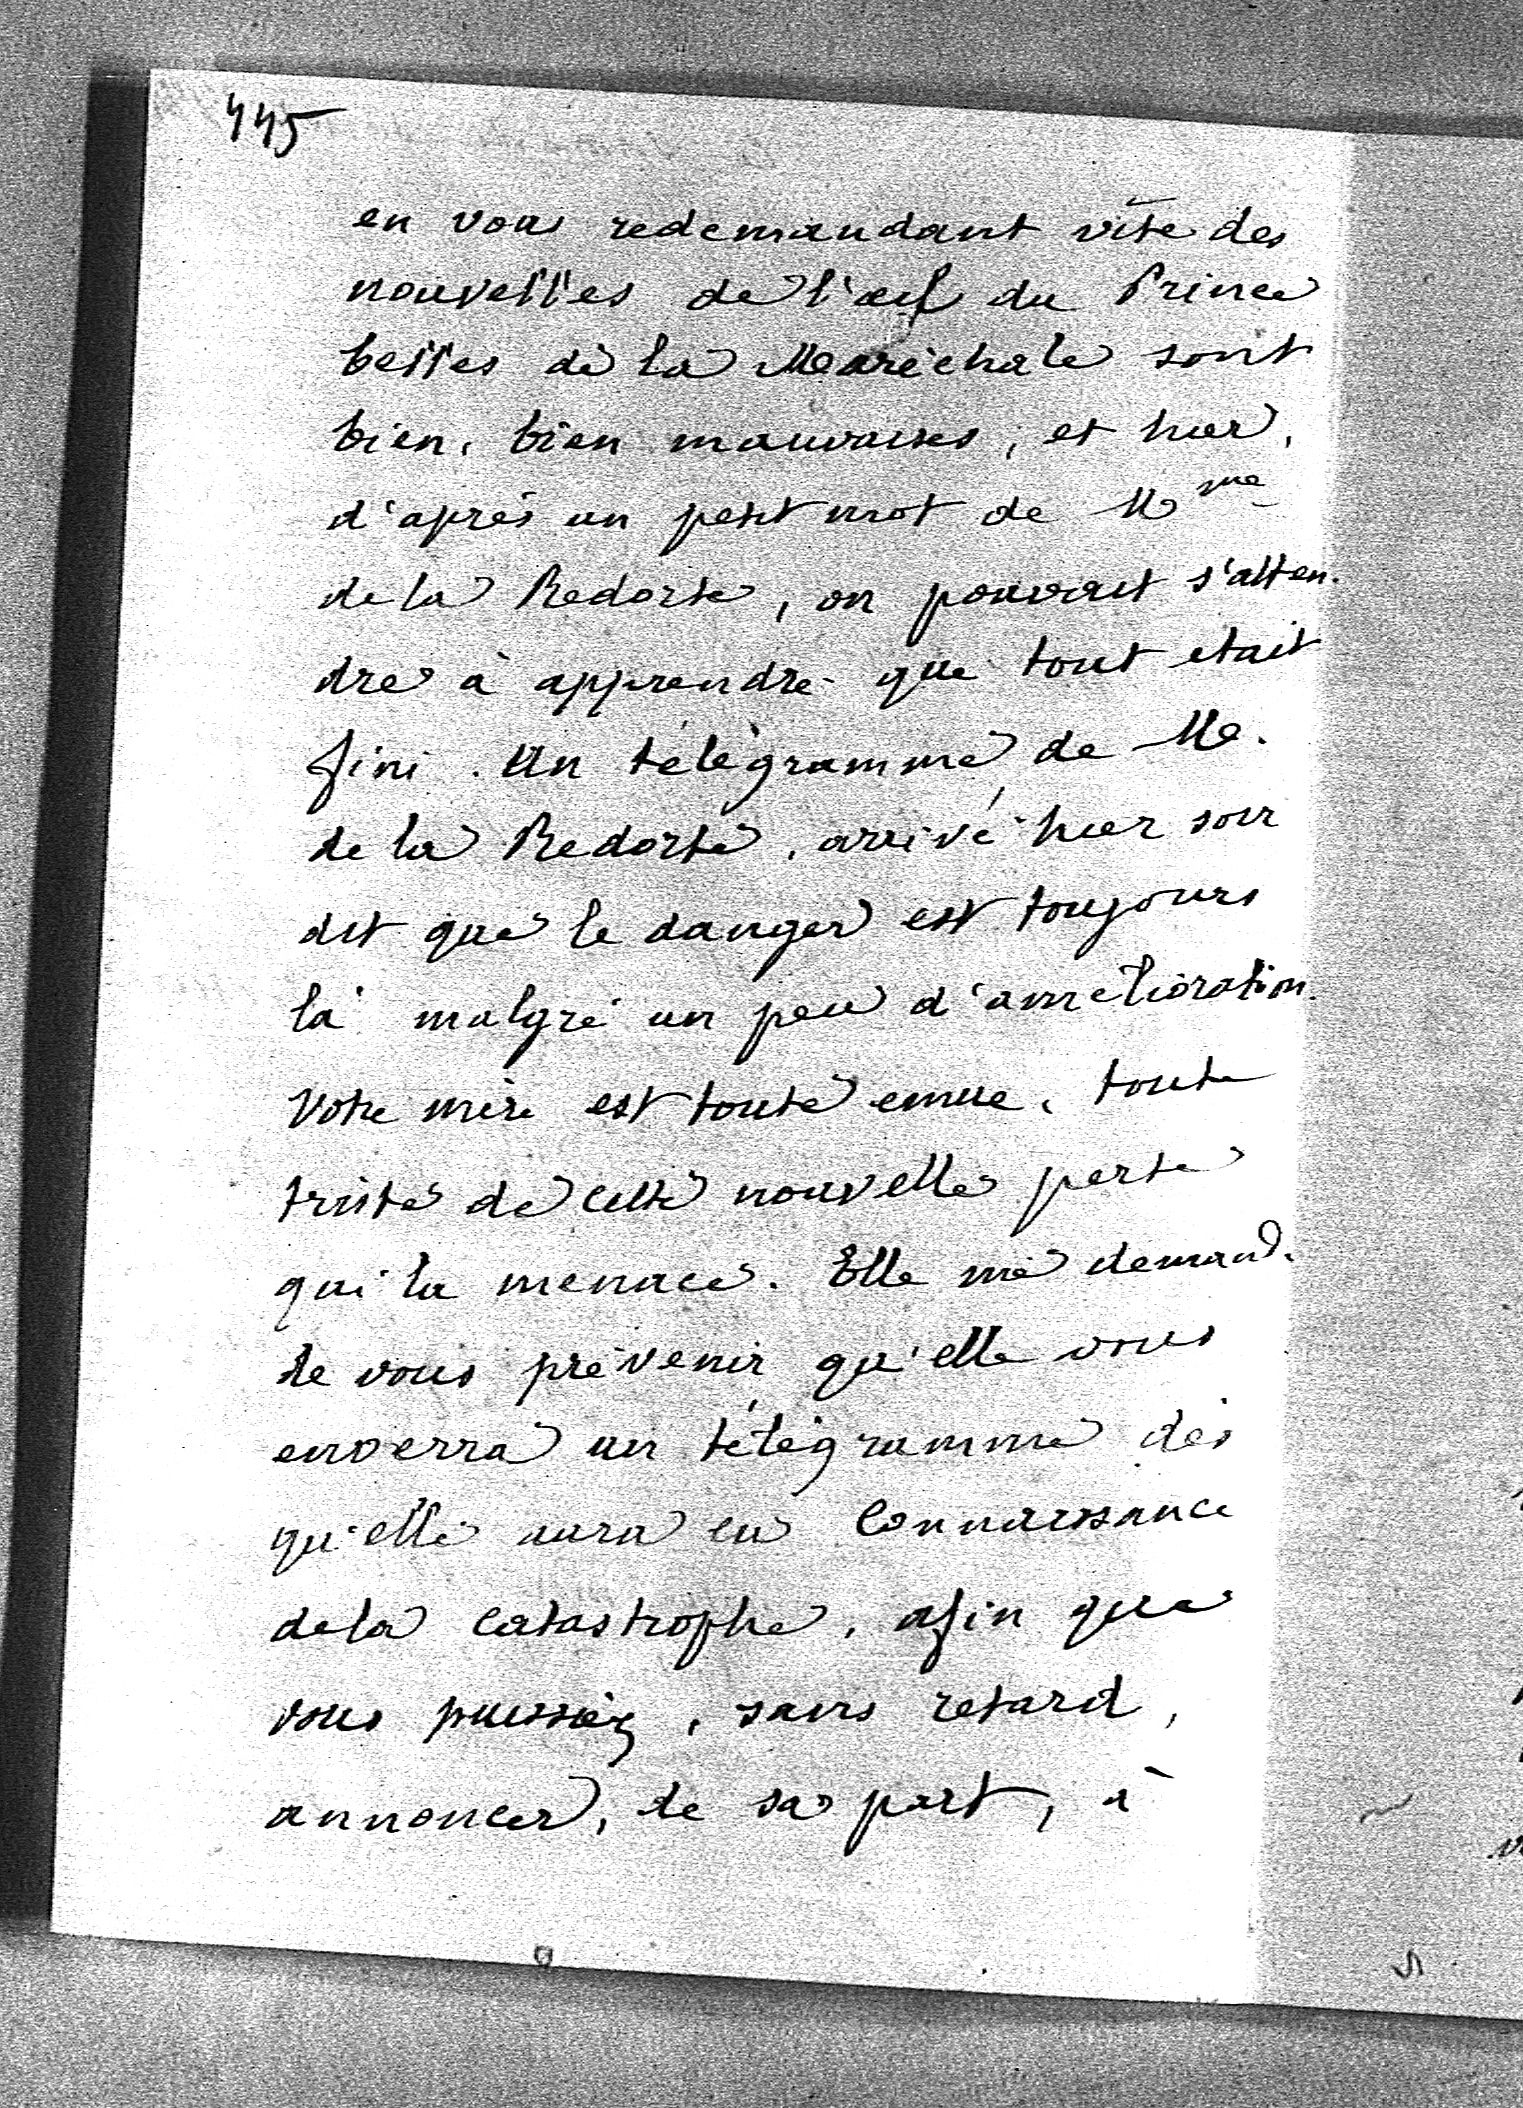 445
en vous redemandant vîte des
nouvelles de l'œil du Prince
Celles de la Maréchale sont
bien, bien mauvaises, et hier,
d'après un petit mot de Mme
de la Redorte, on pouvait s'atten-
dre à apprendre que tout etait
fini. Un télégramme de M.
de la Redorte, arrivé hier soir
dit que le danger est toujours
là malgré un peu d'amélioration.
Votre mère est toute emue, toute
triste de cette nouvelle perte
qui la menace. Elle me demande
de vous prévenir qu'elle vous
enverra un télégramme dès
qu'elle aura eu connaissance
de la catastrophe, afin que
vous puissiez, sans retard,
annoncer, de sa part, à